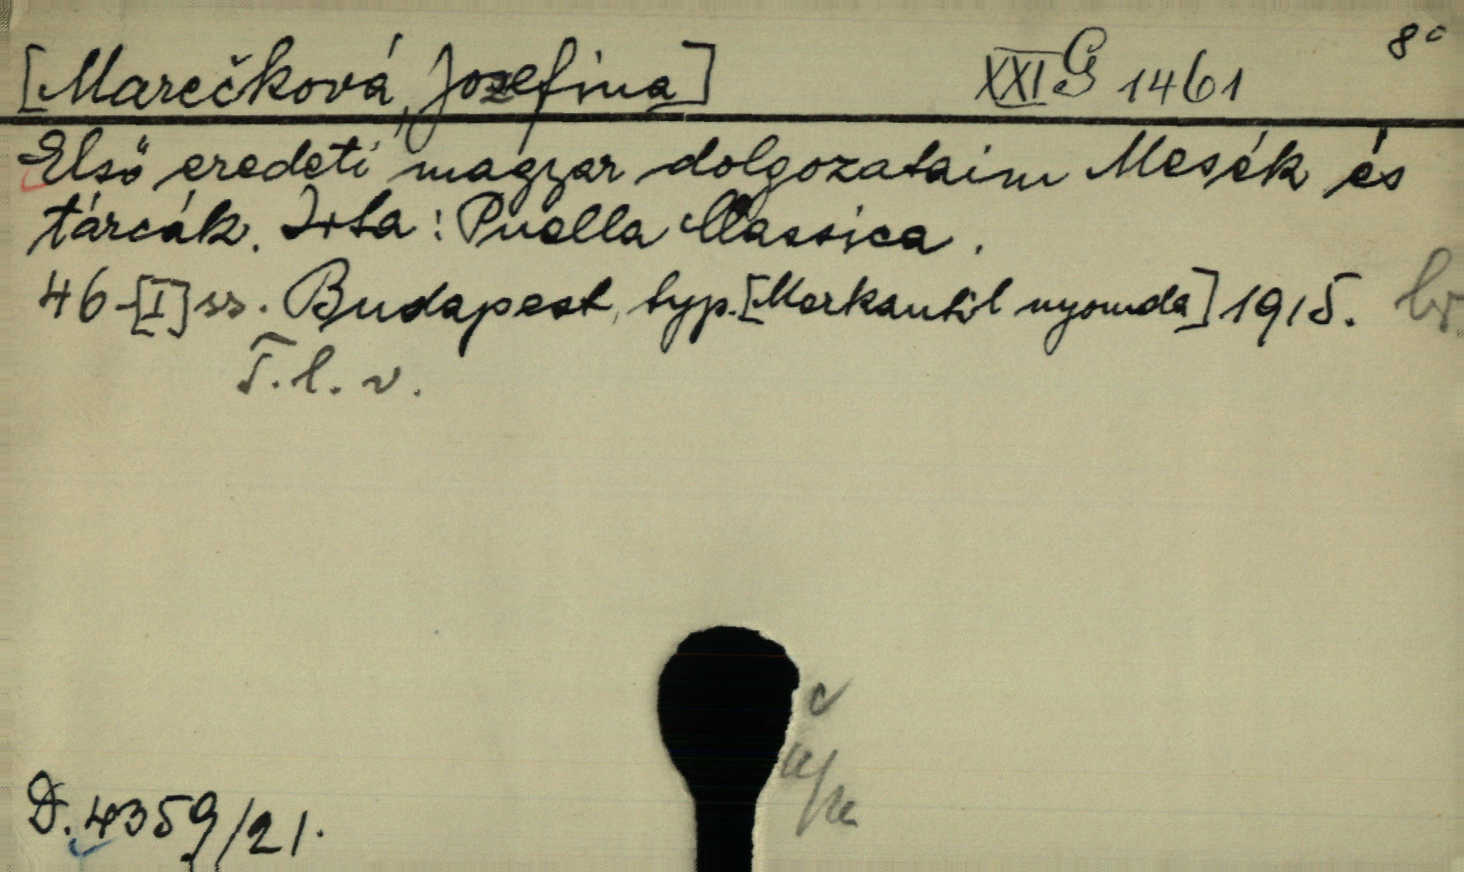 [Marečková, Jozefina] XXI G 1461 8°
Első eredeti magyar dolgozataim Mesék és
tárcák. Irta: Puella Classica.
46-[I] ss. Budapest, typ. [Merkantil nyomda] 1915. br.
T. l. v.
D. 4359/21.